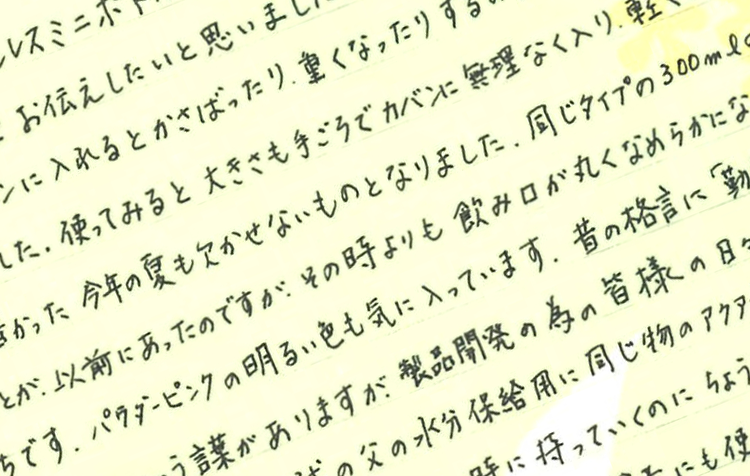 ルスミニボト
お伝えしたいと思いました
ンに入れるとかさばったり、重くなったりする
した。使ってみると大きさも手ごろでカバンに無理なく入り、軽く
かった今年の夏も欠かせないものとなりました。同じタイプの300ml
とが、以前にあったのですが、その時よりも飲み口が丸くなめらかにな
ちです。パウダーピンクの明るい色も気に入っています。昔の格言に「勤
う言葉がありますが、製品開発の為の皆様の日々
の父の水分保給用に同じ物のアクア
時に持っていくのにちょう
にも使